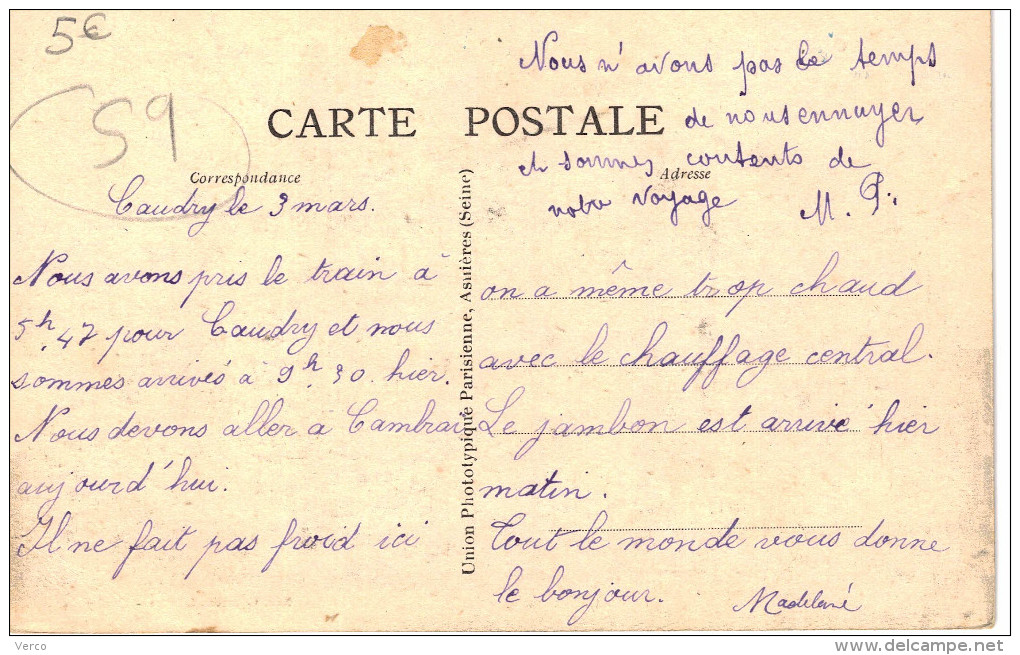 5€
59
Nous n'avons pas le temps
de nous ennuyer
et sommes contents de
notre voyage M. P.
CARTE POSTALE
Correspondance
Adresse
Caudry le 3 mars.
Nous avons pris le train à
5h.47 pour Caudry et nous
sommes arrivés à 9h.30. hier.
Nous devons aller a Cambrai
aujourd'hui.
Il ne fait pas froid ici
Union Phototypique Parisienne, Asnières (Seine)
on a même trop chaud
avec le chauffage central.
Le jambon est arrivé hier
matin.
Tout le monde vous donne
le bonjour.
Madelené
Verco
www.delcampe.net